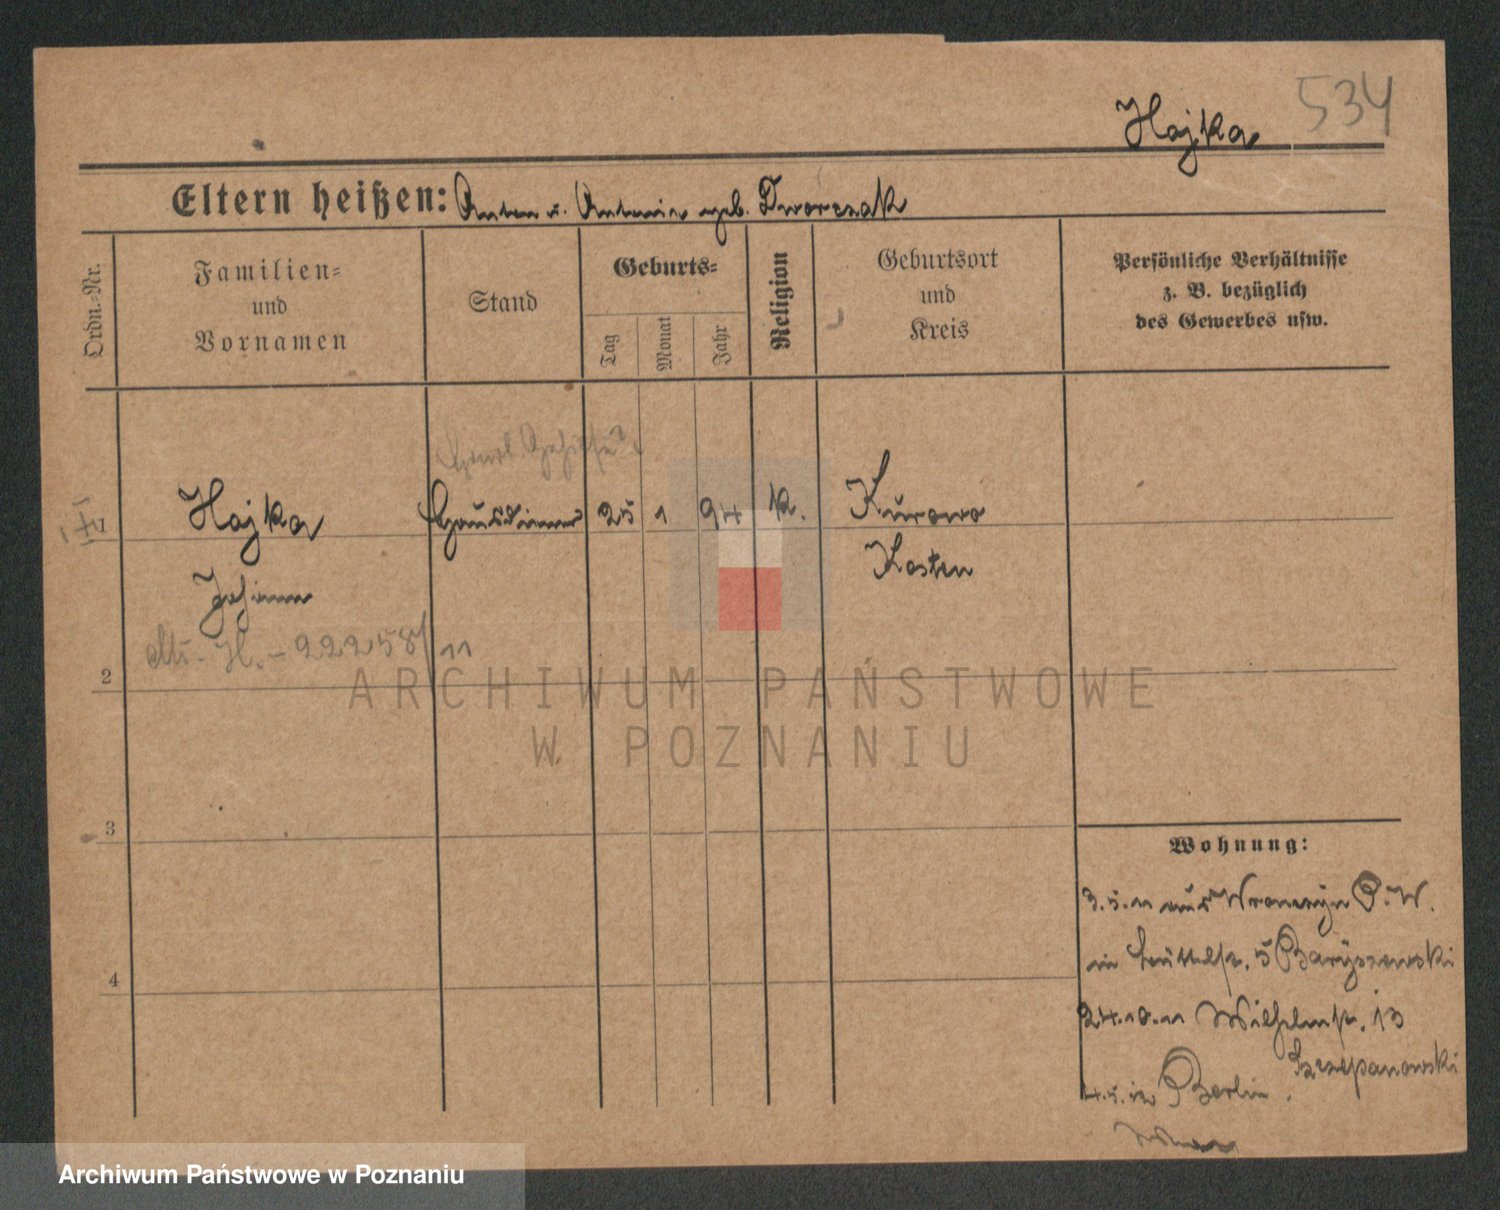 534
Hajka
Eltern heißen: Anton u. Antonie geb. Dworczak
Ordn.=Nr.
Familien=
und
Vornamen
Stand
Geburts=
Tag
Monat
Jahr
Religion
Geburtsort
und
Kreis
Persönliche Verhältnisse
z. B. bezüglich
des Gewerbes usw.
1
Hajka
Hausdiener
25
1
94
k.
Kurowo
Kosten
Johann
22258/11
2
3
4
Wohnung:
3.5.11 aus Wronczyn P.W.
in 5 Baryszewski
24.10.11 Wilhelmstr. 13
Szczepanowski
4.5.12 Berlin.
ARCHIWUM PAŃSTWOWE
W POZNANIU
Archiwum Państwowe w Poznaniu